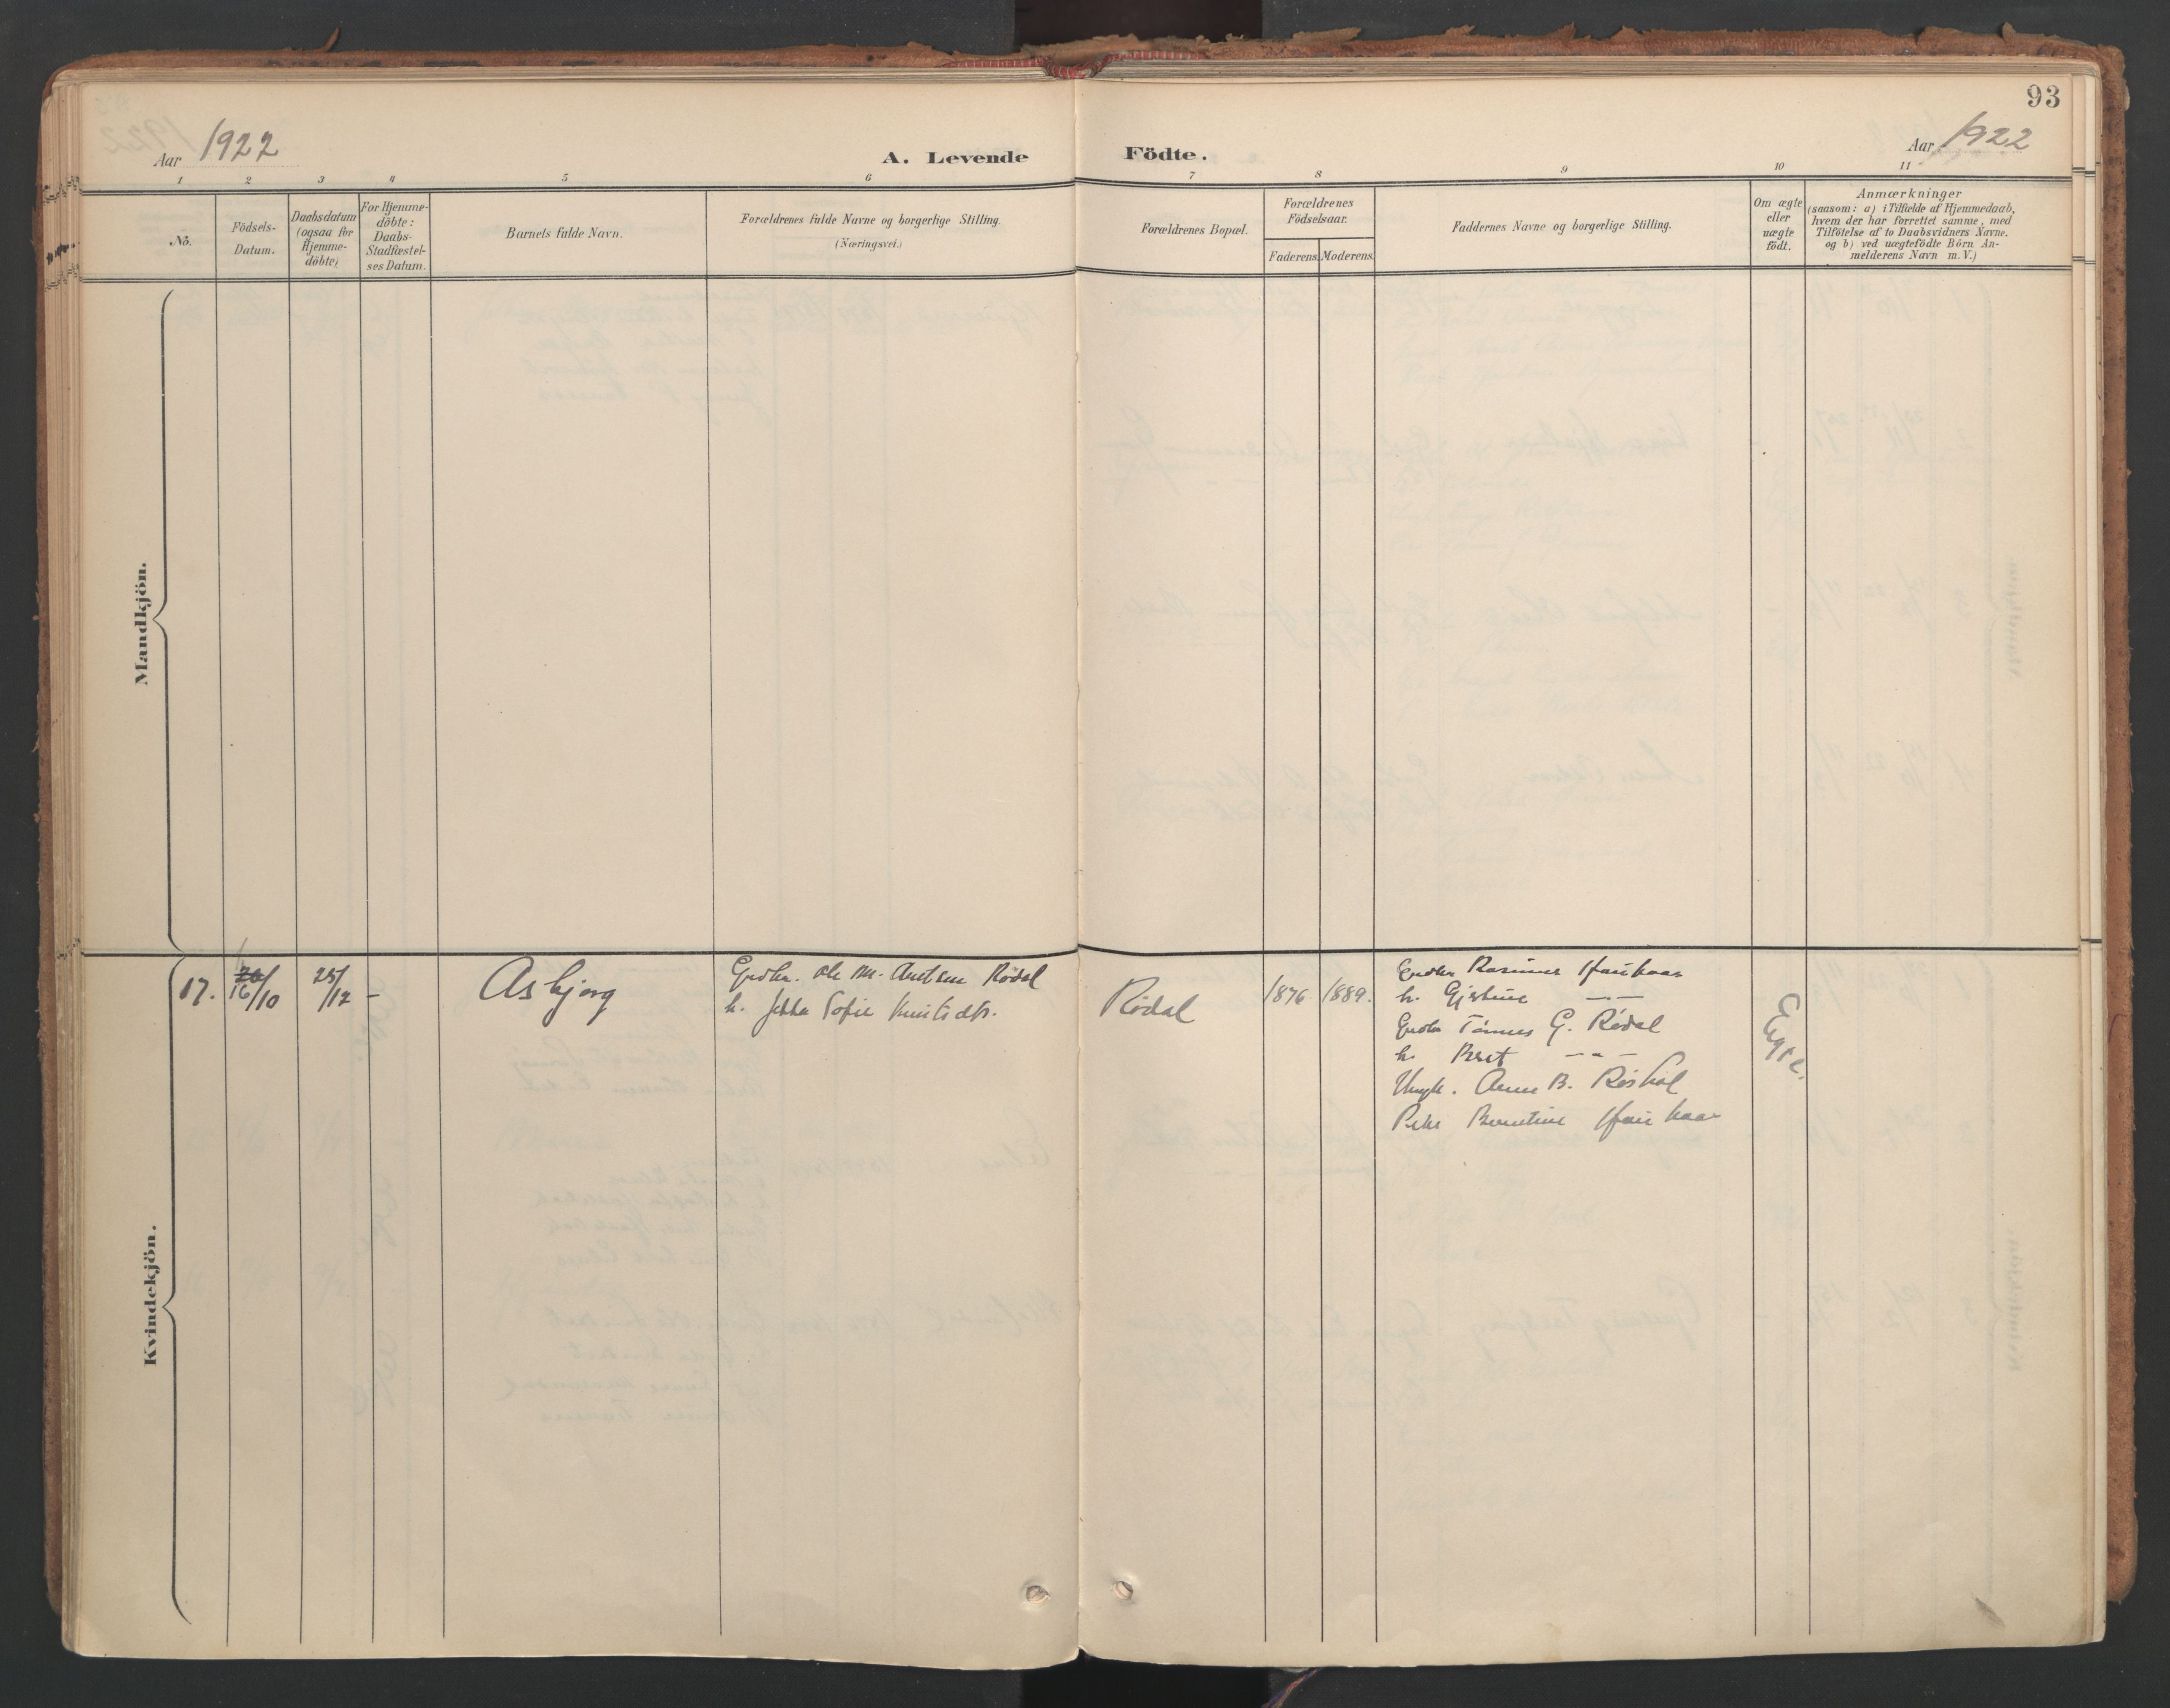 93
Aar 1922
A. Levende Födte.
Aar 1922
1 2 3 4 5 6 7 8 9 10 11
No.
Födsels-
Datum.
Daabsdatum
(ogsaa for
Hjemme-
döbte)
For Hjemme-
döbte:
Daabs-
Stadfæstel-
ses Datum.
Barnets fulde Navn.
Forældrenes fulde Navne og borgerlige Stilling.
(Næringsvei.)
Forældrenes Bopæl.
Forældrenes
Födselsaar.
Faderens. Moderens.
Faddernes Navne og borgerlige Stilling.
Om ægte
eller
uægte
födt.
Anmærkninger
(saasom: a) i Tilfælde af Hjemmedaab,
hvem der har forrettet samme, med
Tilföielse af to Daabsvidners Navne.
og b) ved uægtefödte Börn An-
melderens Navn m. V.)
Mandkjön.
Kvindekjön.
17.
16/10
25/12
-
Asbjørg
Grdbr. Ole M. Rødal
h. Sofie
Rødal
1876
1889.
Grdbr Rasmus
h. Gjertine -"-
Grdbr Tønnes G. Rødal
h. Beret -"-
Ungk. B.
Berntine
Egte.